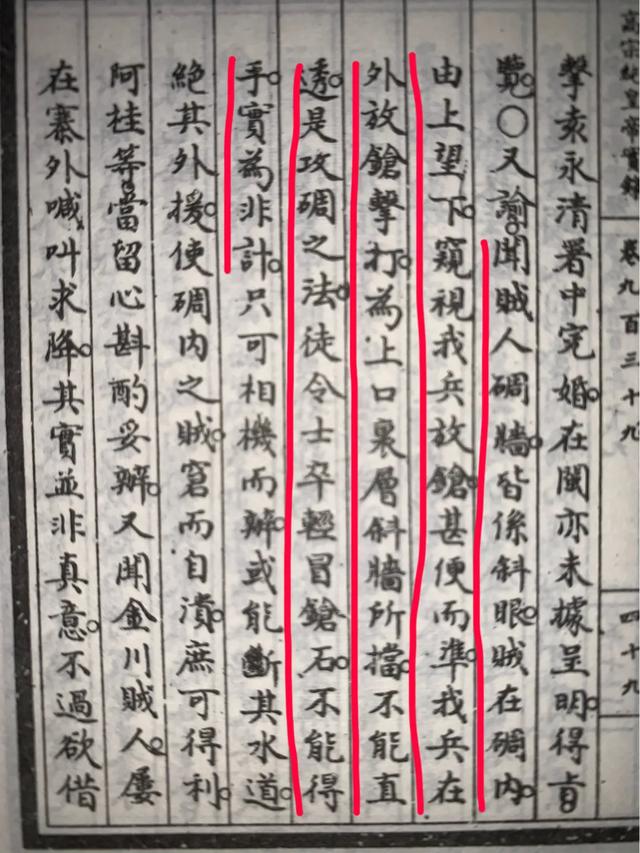 高宗純皇帝實錄 卷九百三十九 四十九
擊袁永清署中完婚。在閩亦未據呈明。得旨
覽。○又諭。聞賊人碉牆。皆係斜眼。賊在碉內。
由上望下。窺視我兵放鎗。甚便而準。我兵在
外放鎗擊打。為上口裏層斜牆所擋。不能直
透。是攻碉之法。徒令士卒輕冒鎗石。不能得
手。實為非計。只可相機而辦。或能斷其水道。
絕其外援。使碉內之賊。窘而自潰。庶可得利。
阿桂等。當留心斟酌妥辦。又聞金川賊人。屢
在寨外喊叫求降。其實並非真意。不過欲借